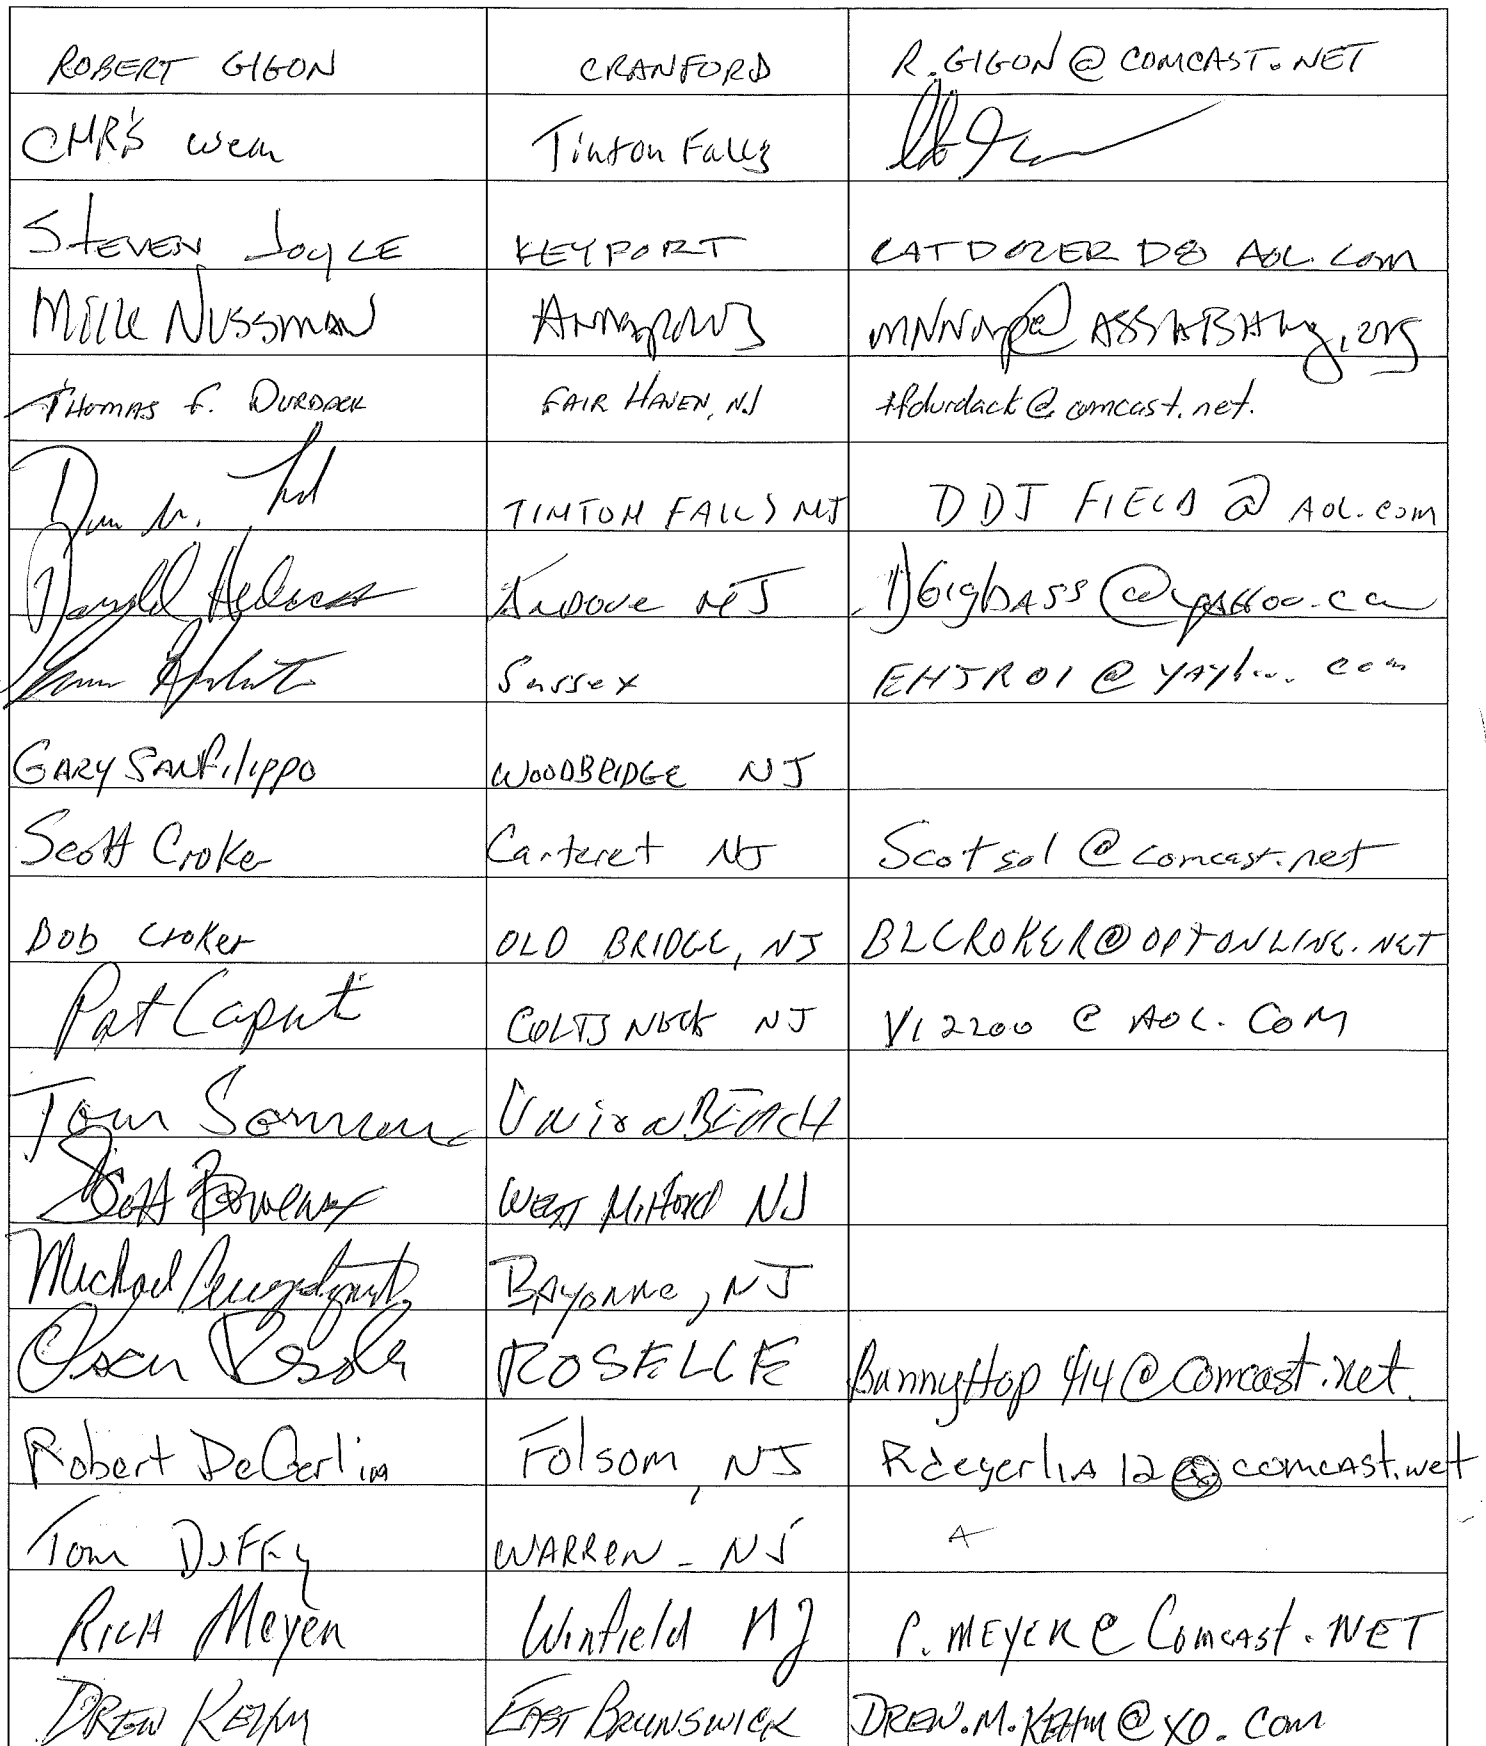 ROBERT GIGON CRANFORD R.GIGON@COMCAST.NET
CHR'S Wean Tinton Falls
STEVEN JOYCE KEYPORT CATDOZER D8 AOL.COM
MIKE NUSSMAN ANNAPOLIS
THOMAS F. DURDACK FAIR HAVEN, NJ tfdurdack@comcast.net.
TINTON FALLS NJ DDJ FIELD @ AOL.com
Donald ANDOVE NJ
Sussex EHJR01@
GARY SANFILIPPO WOODBRIDGE NJ
Scott Croker Carteret NJ Scotsol @comcast.net
Bob Croker OLD BRIDGE, NJ BLCROKER@OPTONLINE.NET
Pat Caput COLTS NECK NJ V12200 @ AOL.COM
Tom UNION BEACH
Scott WEST Milford NJ
Michael BAYONNE, NJ
ROSELLE BunnyHop 414@comcast.net.
Robert DeGerlia Folsom, NJ Rdegerlia 12@comcast.net
Tom DUFFY WARREN - NJ
RICH Meyer Winfield NJ r.MEYER@Comcast.NET
DREW KEHM EAST BRUNSWICK DREW.M.KEHM@XO.COM